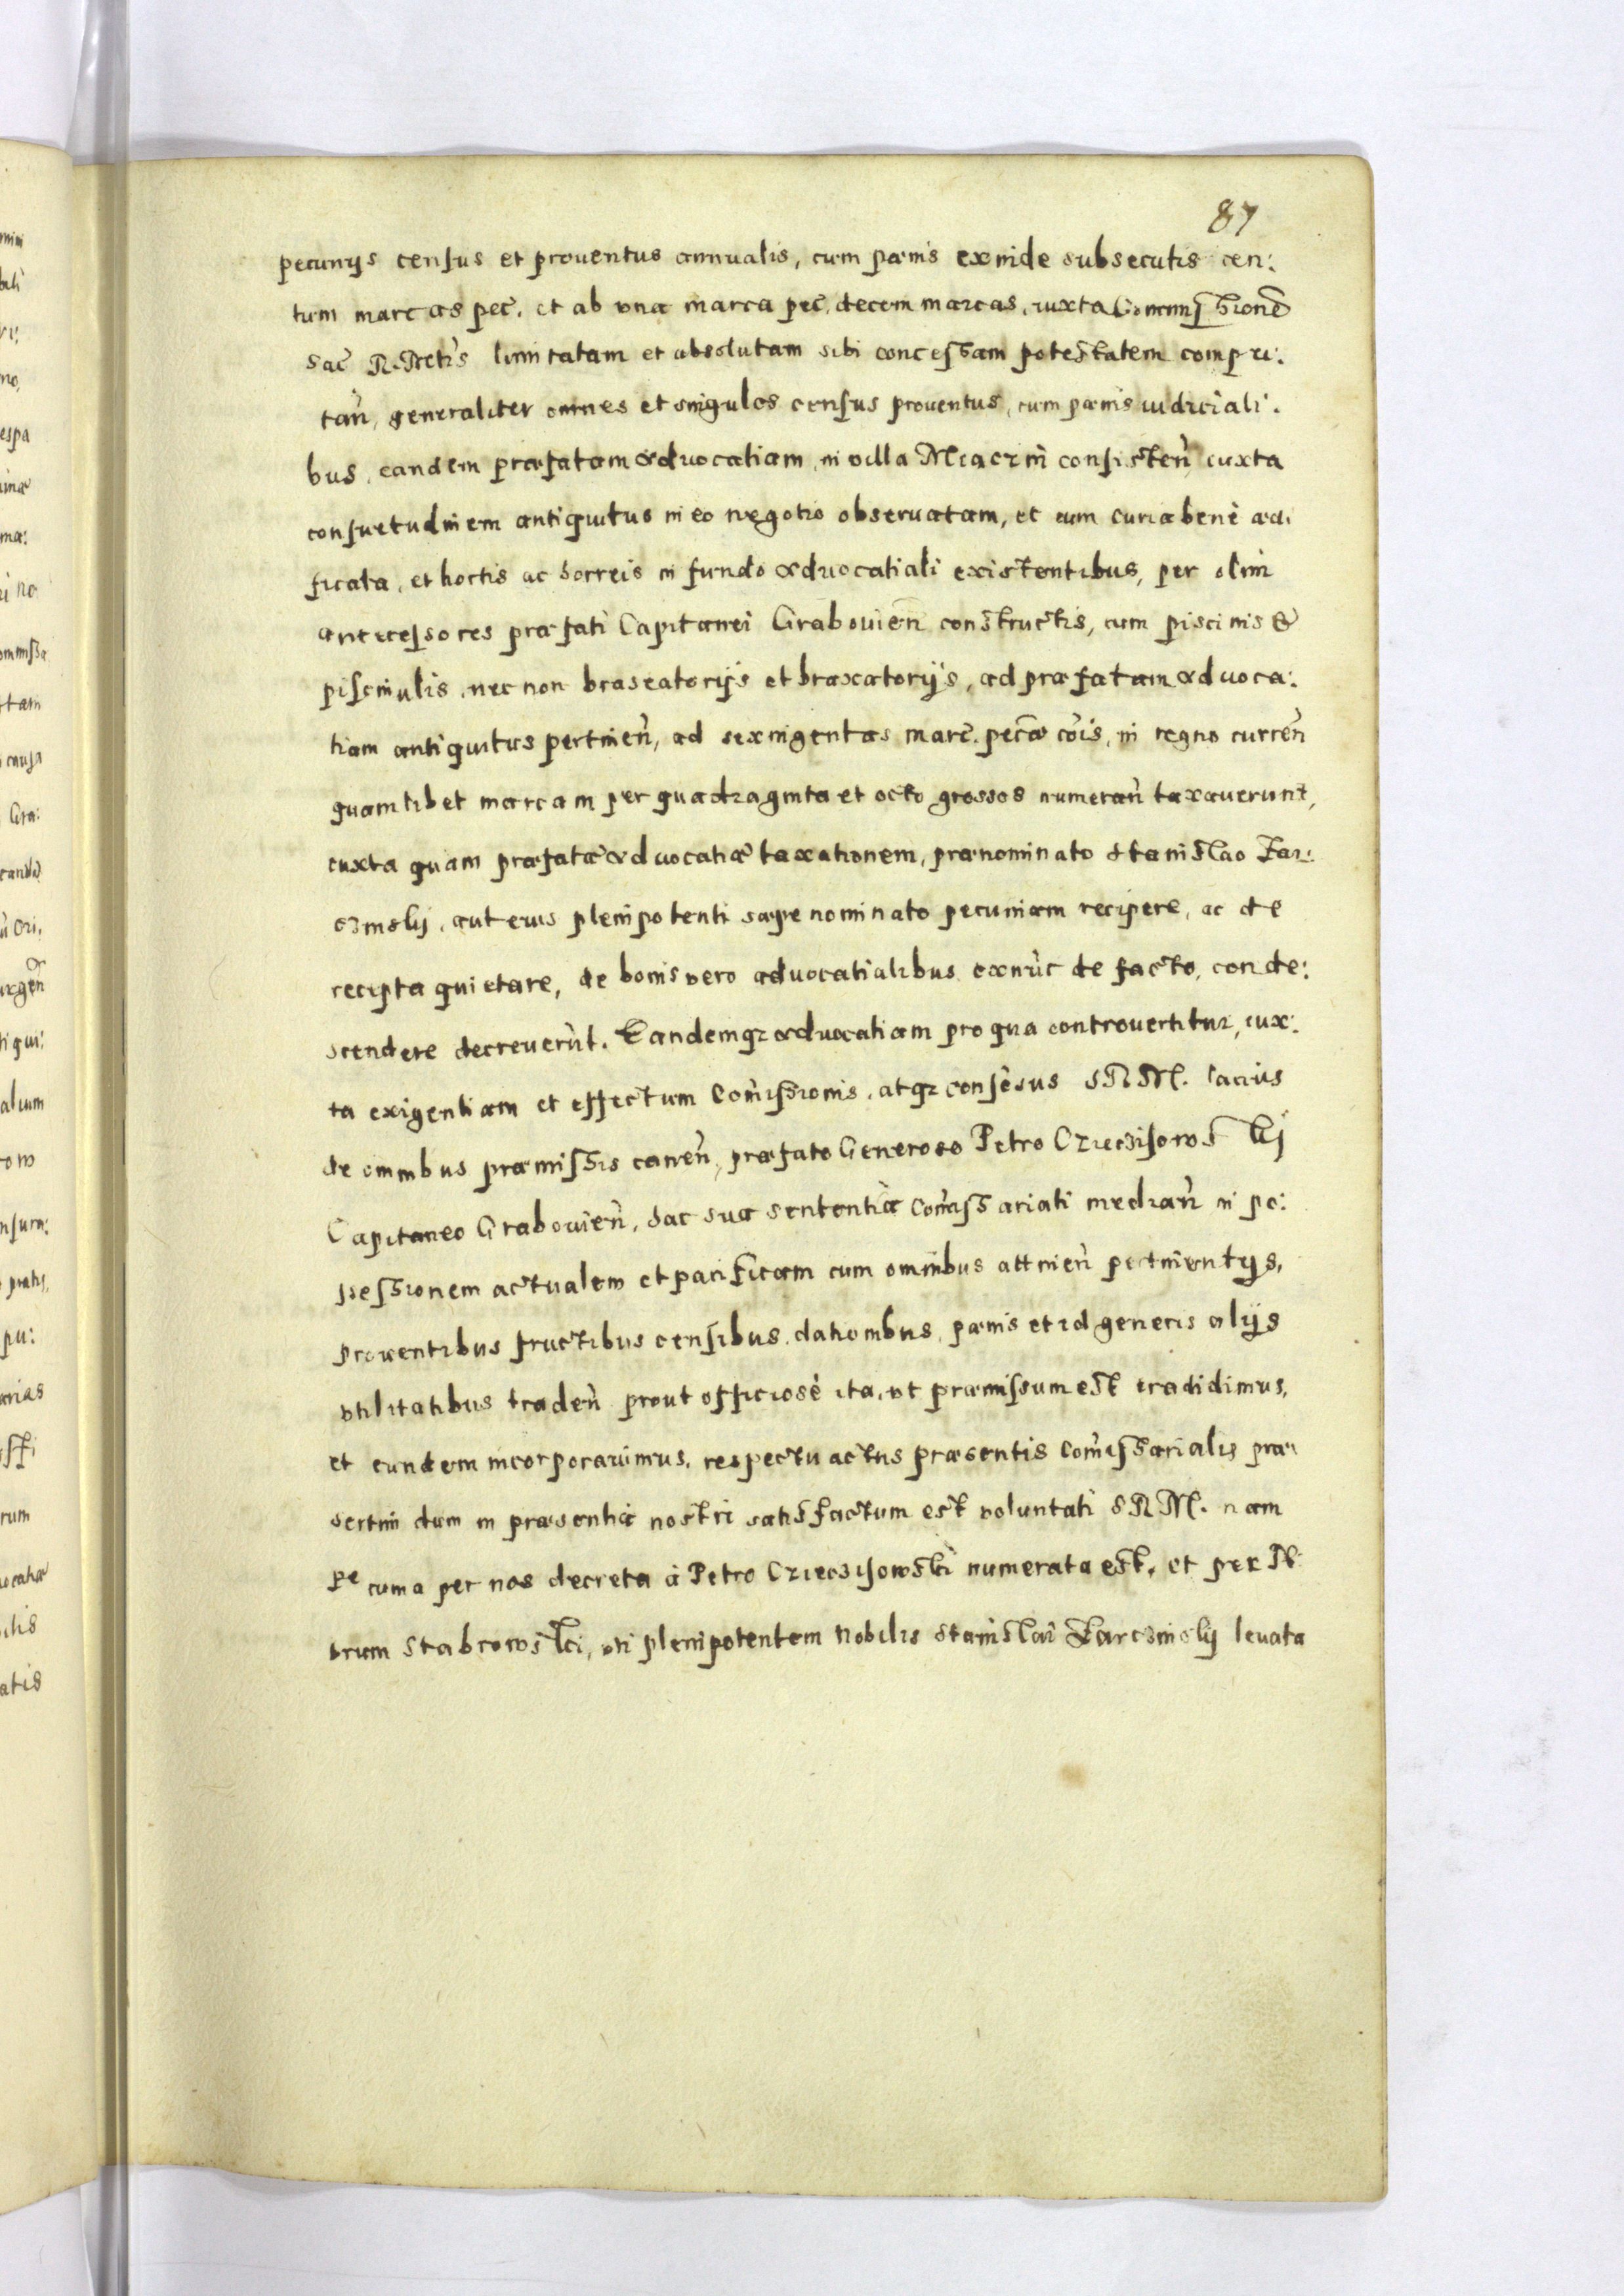 87
pecunijs census et prouentus annualis, cum pœnis exinde subsecutis cen:
tum marcas pec̃. et ab vna marca pec̃. decem marcas, iuxta Commissionẽ
Sac̃ R. Mĉtis limitatam et absolutam sibi concessam potestatem compu:
tañ, generaliter omnes et singulos census prouentus, cum pœnis iudiciali:
bus, eandem præfatam aduocatiam, in villa Miaczin consisteñ, iuxta
consuetudinem antiquitus in eo negotio obseruatam, et cum curia benè ædi
ficata, et hortis ac horreis in fundo aduocatiali existentibus, per olim
antecessores præfati Capitanei Grabouieñ constructis, cum piscinis &
piscinulis, nec non braseatorijs et braxatorijs, ad præfatam aduoca:
tiam antiquitus pertineñ, ad sexingentas marc̃. pecũæ cõis, in regno curreñ
quamlibet marcam per quadraginta et octo grossos numerañ taxauerunt,
iuxta quam præfatæ aduocatiæ taxationem, prænominato Stanislao Zar:
czinskij, aut eius plenipotenti sæpe nominato pecuniam recipere, ac de
recepta quietare, de bonis vero aduocatialibus exnũc de facto, conde:
scendere decreuerũt. Eandemq₃ aduocatiam pro qua controuertitur, iux:
ta exigentiam et effectum Com̃issionis, atq₃ consẽsus S R M. Lacius
de omnibus præmissis caneñ, præfato Generoso Petro Czieczisowskij
Capitaneo Grabouieñ, hac sua sententia Com̃issariati mediañ in po:
ssessionem actualem et pacificam cum omnibus attineñ pertinentijs,
prouentibus fructibus censibus, dationibus, pœnis et id generis alijs
vtilitatibus tradeñ prout officiosè ita, vt præmissum est tradidimus,
et eundem incorporauimus, respectu actus præsentis Com̃issarialis præ:
sertim dum in præsentia nostri satisfactum est voluntati S R M. nam
Pecunia per nos decreta à Petro Czieczisowski numerata est, et per N
brum Stabrowski, vti plenipotentem Nobilis Stanislai Zarczinskij leuata